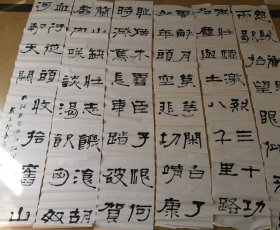 雨歇抬望眼仰
嘯壯懷激烈三十功
名塵與土八千里路
雲和月莫等閒白了
少年頭空悲切靖康
恥猶未雪臣子恨何
時滅駕長車踏破賀
蘭山缺壯志飢餐胡
虜肉笑談渴飲匈奴
血待從頭收拾舊山
河朝天闕